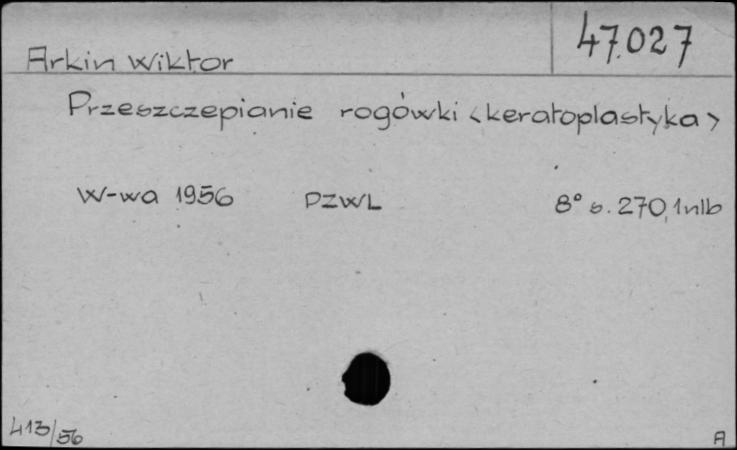 47.027
Arkin Wiktor
Przeszczepianie rogówki <keratoplastyka>
W-wa 1956 PZWL 8° s. 270, 1nlb
413/56 A